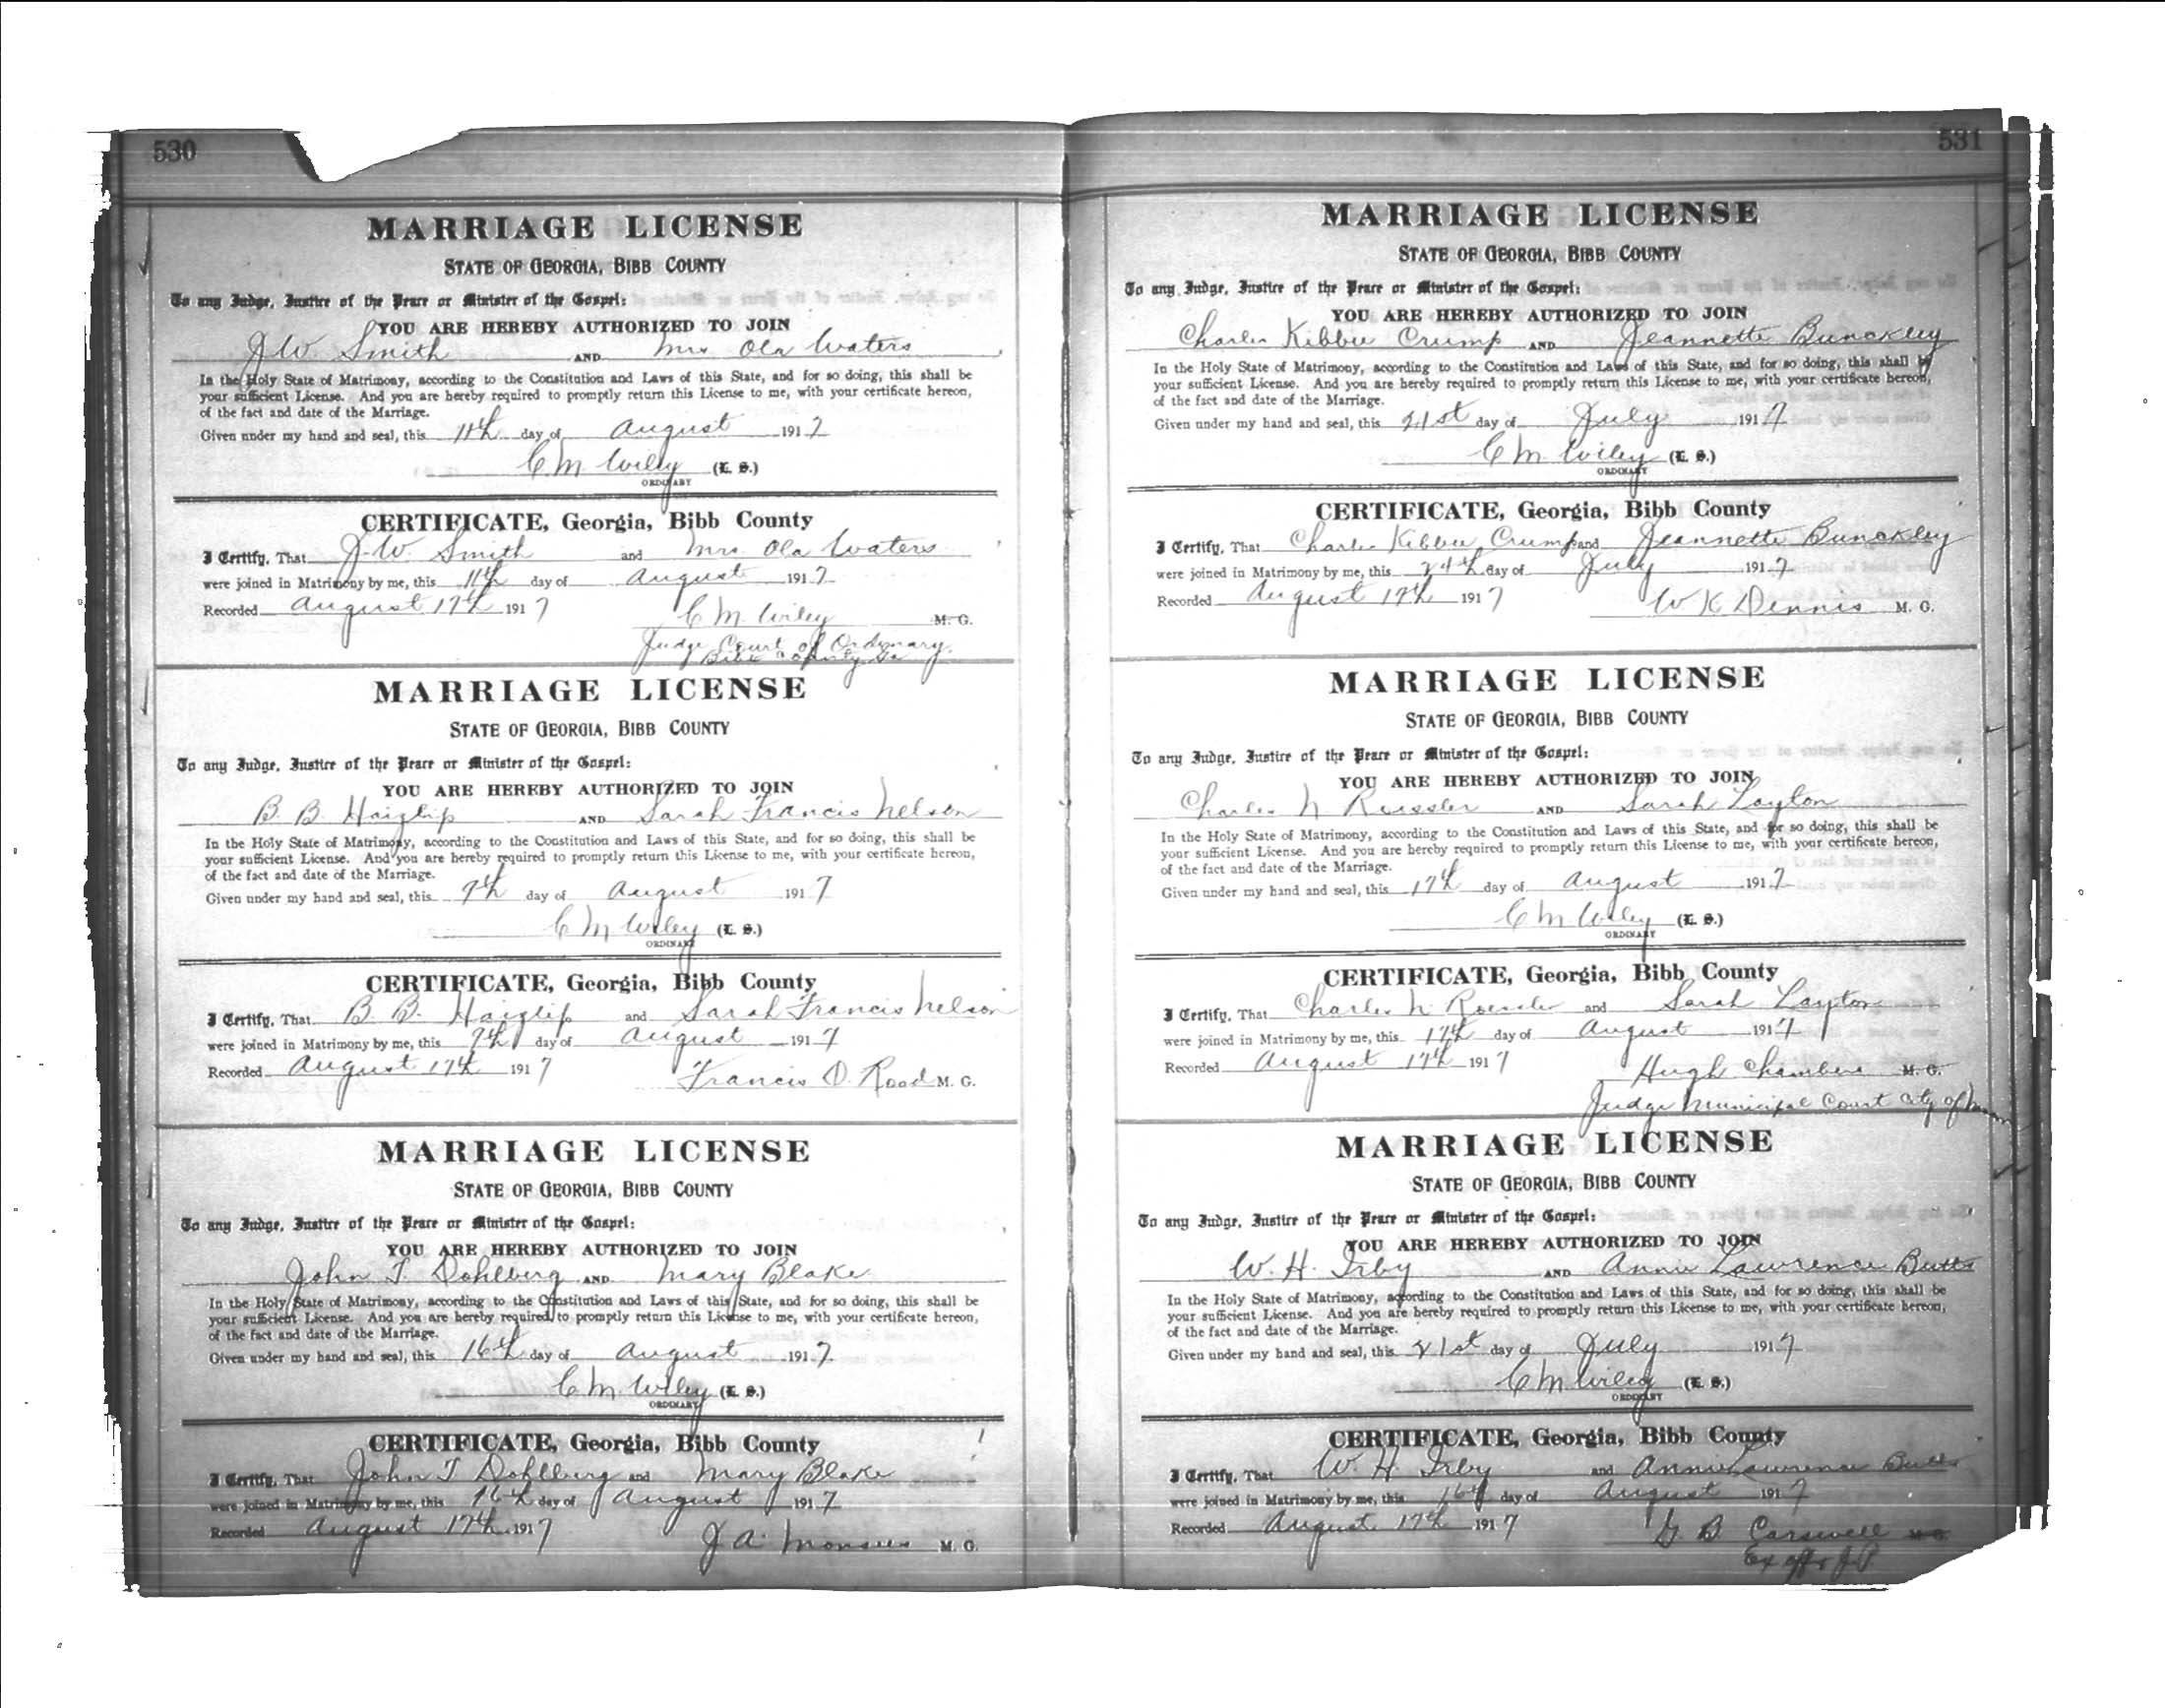 530
MARRIAGE LICENSE
STATE OF GEORGIA, BIBB COUNTY
To any Judge, Justice of the Peace or Minister of the Gospel:
YOU ARE HEREBY AUTHORIZED TO JOIN
J. W. Smith AND Mrs Ola Waters
In the Holy State of Matrimony, according to the Constitution and Laws of this State, and for so doing, this shall be
your sufficient License. And you are hereby required to promptly return this License to me, with your certificate hereon,
of the fact and date of the Marriage.
Given under my hand and seal, this 11th day of August 1917
C M Wiley (L. S.)
ORDINARY
CERTIFICATE, Georgia, Bibb County
I Certify, That J. W. Smith and Mrs. Ola Waters
were joined in Matrimony by me, this 11th day of August 1917
Recorded August 17th 1917 C M Wiley M. G.
Judge Court of Ordinary
Bibb County Ga
MARRIAGE LICENSE
STATE OF GEORGIA, BIBB COUNTY
To any Judge, Justice of the Peace or Minister of the Gospel:
YOU ARE HEREBY AUTHORIZED TO JOIN
B. B. Haizlip AND Sarah Francis Nelson
In the Holy State of Matrimony, according to the Constitution and Laws of this State, and for so doing, this shall be
your sufficient License. And you are hereby required to promptly return this License to me, with your certificate hereon,
of the fact and date of the Marriage.
Given under my hand and seal, this 7th day of August 1917
C M Wiley (L. S.)
ORDINARY
CERTIFICATE, Georgia, Bibb County
I Certify, That B. B. Haizlip and Sarah Francis Nelson
were joined in Matrimony by me, this 7th day of August 1917
Recorded August 17th 1917 Francis O. Rood M. G.
MARRIAGE LICENSE
STATE OF GEORGIA, BIBB COUNTY
To any Judge, Justice of the Peace or Minister of the Gospel:
YOU ARE HEREBY AUTHORIZED TO JOIN
John T. Dohlberg AND Mary Blake
In the Holy State of Matrimony, according to the Constitution and Laws of this State, and for so doing, this shall be
your sufficient License. And you are hereby required to promptly return this License to me, with your certificate hereon,
of the fact and date of the Marriage.
Given under my hand and seal, this 16th day of August 1917
C M Wiley (L. S.)
ORDINARY
CERTIFICATE, Georgia, Bibb County
I Certify, That John T Dohlberg and Mary Blake
were joined in Matrimony by me, this 16th day of August 1917
Recorded August 17th 1917 J A M. G.
531
MARRIAGE LICENSE
STATE OF GEORGIA, BIBB COUNTY
To any Judge, Justice of the Peace or Minister of the Gospel:
YOU ARE HEREBY AUTHORIZED TO JOIN
Charles Kibbee Crump AND Jeannette Bunckley
In the Holy State of Matrimony, according to the Constitution and Laws of this State, and for so doing, this shall be
your sufficient License. And you are hereby required to promptly return this License to me, with your certificate hereon,
of the fact and date of the Marriage.
Given under my hand and seal, this 21st day of July 1917
C M Wiley (L. S.)
ORDINARY
CERTIFICATE, Georgia, Bibb County
I Certify, That Charles Kibbee Crump and Jeannette Bunckley
were joined in Matrimony by me, this 24th day of July 1917
Recorded August 17th 1917 W K Dennis M. G.
MARRIAGE LICENSE
STATE OF GEORGIA, BIBB COUNTY
To any Judge, Justice of the Peace or Minister of the Gospel:
YOU ARE HEREBY AUTHORIZED TO JOIN
Charles N Roessler AND Sarah Layton
In the Holy State of Matrimony, according to the Constitution and Laws of this State, and for so doing, this shall be
your sufficient License. And you are hereby required to promptly return this License to me, with your certificate hereon,
of the fact and date of the Marriage.
Given under my hand and seal, this 17th day of August 1917
C M Wiley (L. S.)
ORDINARY
CERTIFICATE, Georgia, Bibb County
I Certify, That Charles N. Roessler and Sarah Layton
were joined in Matrimony by me, this 17th day of August 1917
Recorded August 17th 1917 Hugh Chambers M. G.
Judge Municipal Court City of
MARRIAGE LICENSE
STATE OF GEORGIA, BIBB COUNTY
To any Judge, Justice of the Peace or Minister of the Gospel:
YOU ARE HEREBY AUTHORIZED TO JOIN
W. H. Irby AND Annie Lawrence Butts
In the Holy State of Matrimony, according to the Constitution and Laws of this State, and for so doing, this shall be
your sufficient License. And you are hereby required to promptly return this License to me, with your certificate hereon,
of the fact and date of the Marriage.
Given under my hand and seal, this 21st day of July 1917
C M Wiley (L. S.)
ORDINARY
CERTIFICATE, Georgia, Bibb County
I Certify, That W. H. Irby and Annie Lawrence Butts
were joined in Matrimony by me, this 16th day of August 1917
Recorded August 17th 1917 G. B Carswell M. G.
Ex offo J.P.